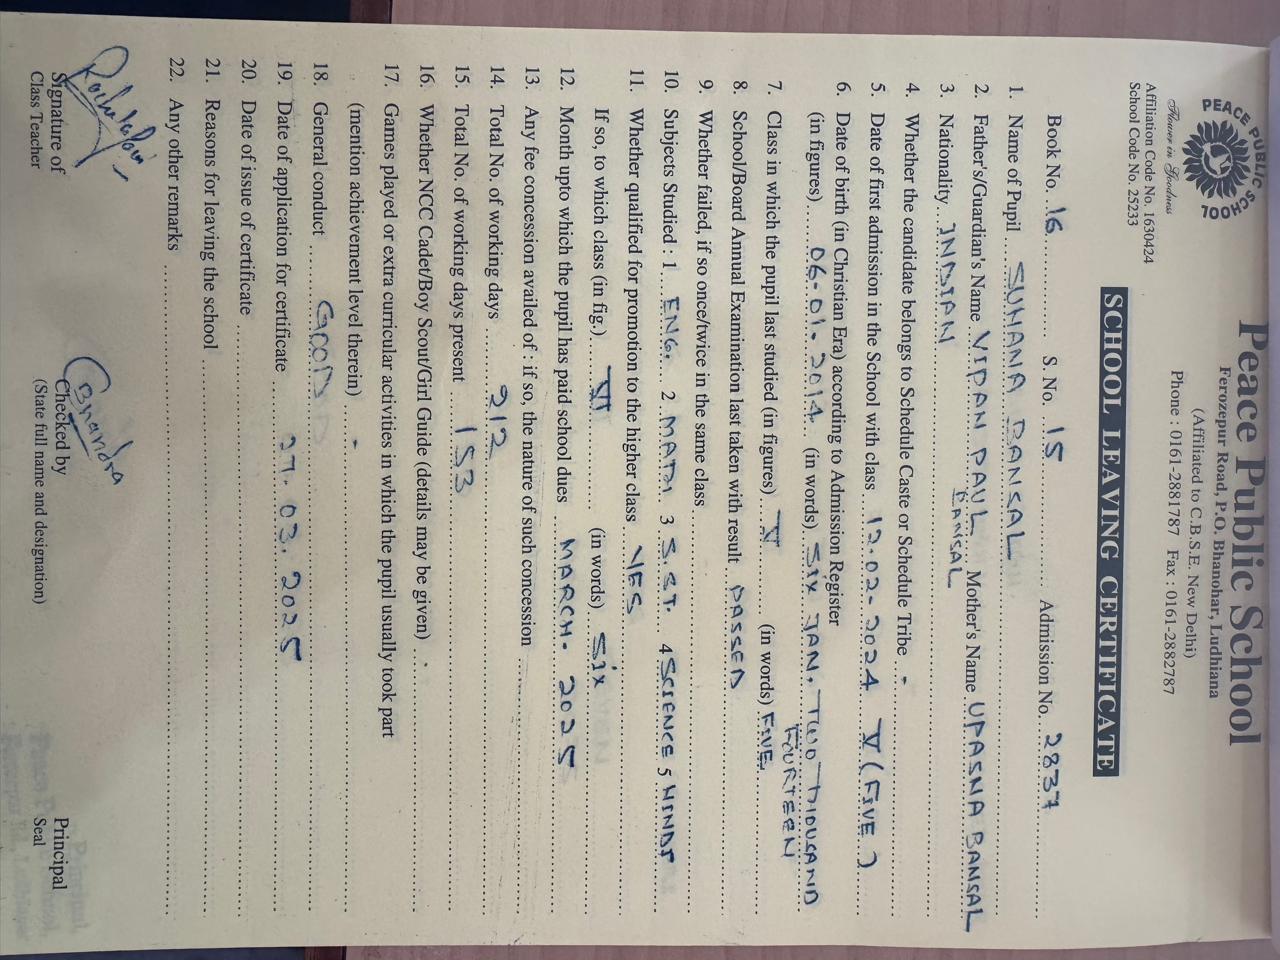 PEACE PUBLIC SCHOOL
Flower in Goodness
Affiliation Code No. 1630424
School Code No. 25233
Peace Public School
Ferozepur Road, P.O. Bhanohar, Ludhiana
(Affiliated to C.B.S.E. New Delhi)
Phone : 0161-2881787 Fax : 0161-2882787
SCHOOL LEAVING CERTIFICATE
Book No. 16 S. No. 15 Admission No. 2837
1. Name of Pupil SUHANA BANSAL
2. Father's/Guardian's Name VIPAN PAUL BANSAL Mother's Name UPASNA BANSAL
3. Nationality INDIAN
4. Whether the candidate belongs to Schedule Caste or Schedule Tribe -
5. Date of first admission in the School with class 12.02-2024 V (FIVE)
6. Date of birth (in Christian Era) according to Admission Register
(in figures) 06-01-2014 (in words) SIX JAN. TWO THOUSAND FOURTEEN
7. Class in which the pupil last studied (in figures) V (in words) FIVE
8. School/Board Annual Examination last taken with result PASSED
9. Whether failed, if so once/twice in the same class
10. Subjects Studied : 1 ENG. 2 MATH 3 S.ST. 4 SCIENCE 5 HINDI
11. Whether qualified for promotion to the higher class YES
If so, to which class (in fig.) VI (in words) Six
12. Month upto which the pupil has paid school dues MARCH. 2025
13. Any fee concession availed of : if so, the nature of such concession
14. Total No. of working days 212
15. Total No. of working days present 153
16. Whether NCC Cadet/Boy Scout/Girl Guide (details may be given) .
17. Games played or extra curricular activities in which the pupil usually took part
(mention achievement level therein) -
18. General conduct GOOD
19. Date of application for certificate 27.03.2025
20. Date of issue of certificate
21. Reasons for leaving the school
22. Any other remarks
Chandra
Signature of Checked by Principal
Class Teacher (State full name and designation) Seal